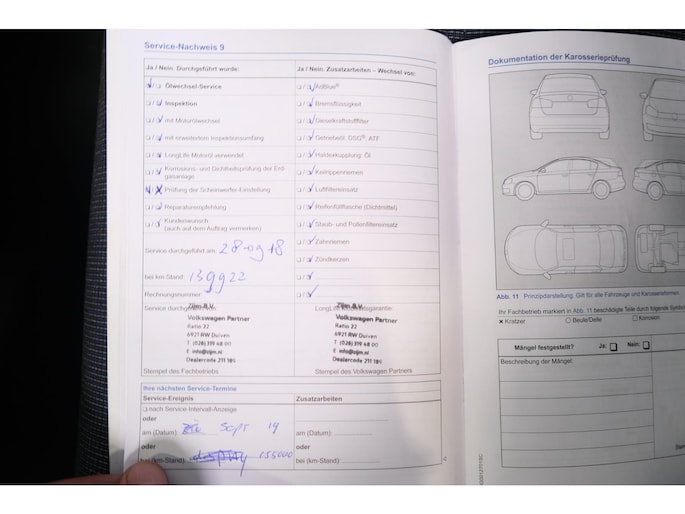 Service-Nachweis 9
Ja / Nein. Durchgeführt wurde:
Ölwechsel-Service
Inspektion
mit Motorölwechsel
mit erweitertem Inspektionsumfang
LongLife Motoröl verwendet
Korrosions- und Dichtheitsprüfung der Erd-
gasanlage
Prüfung der Scheinwerfer-Einstellung
Reparaturempfehlung
Kundenwunsch
(auch auf dem Auftrag vermerken)
Service durchgeführt am: 28-09-18
bei km-Stand: 139922
Rechnungsnummer:
Service durch
Zijm B.V.
Volkswagen Partner
Ratio 22
6921 RW Duiven
T (026) 319 48 00
E info@zijm.nl
Dealercode 211 189
Stempel des Fachbetriebs
Ja / Nein. Zusatzarbeiten – Wechsel von:
AdBlue®
Bremsflüssigkeit
Dieselkraftstofffilter
Getriebeöl: DSG®, ATF
Haldexkupplung: Öl
Keilrippenriemen
Luftfiltereinsatz
Reifenfüllflasche (Dichtmittel)
Staub- und Pollenfiltereinsatz
Zahnriemen
Zündkerzen
LongLife
garantie:
Zijm B.V.
Volkswagen Partner
Ratio 22
6921 RW Duiven
T (026) 319 48 00
E info@zijm.nl
Dealercode 211 189
Stempel des Volkswagen Partners
Ihre nächsten Service-Termine
Service-Ereignis
nach Service-Intervall-Anzeige
oder
am (Datum): Sept 19
oder
bei (km-Stand): 155000
Zusatzarbeiten
am (Datum):
bei (km-Stand):
Dokumentation der Karosserieprüfung
Abb. 11 Prinzipdarstellung. Gilt für alle Fahrzeuge und Karosserieformen.
Ihr Fachbetrieb markiert in Abb. 11 beschädigte Teile durch folgende Symbol
× Kratzer
Beule/Delle
Korrosion
Mängel festgestellt?
Ja:
Nein:
Beschreibung der Mängel: